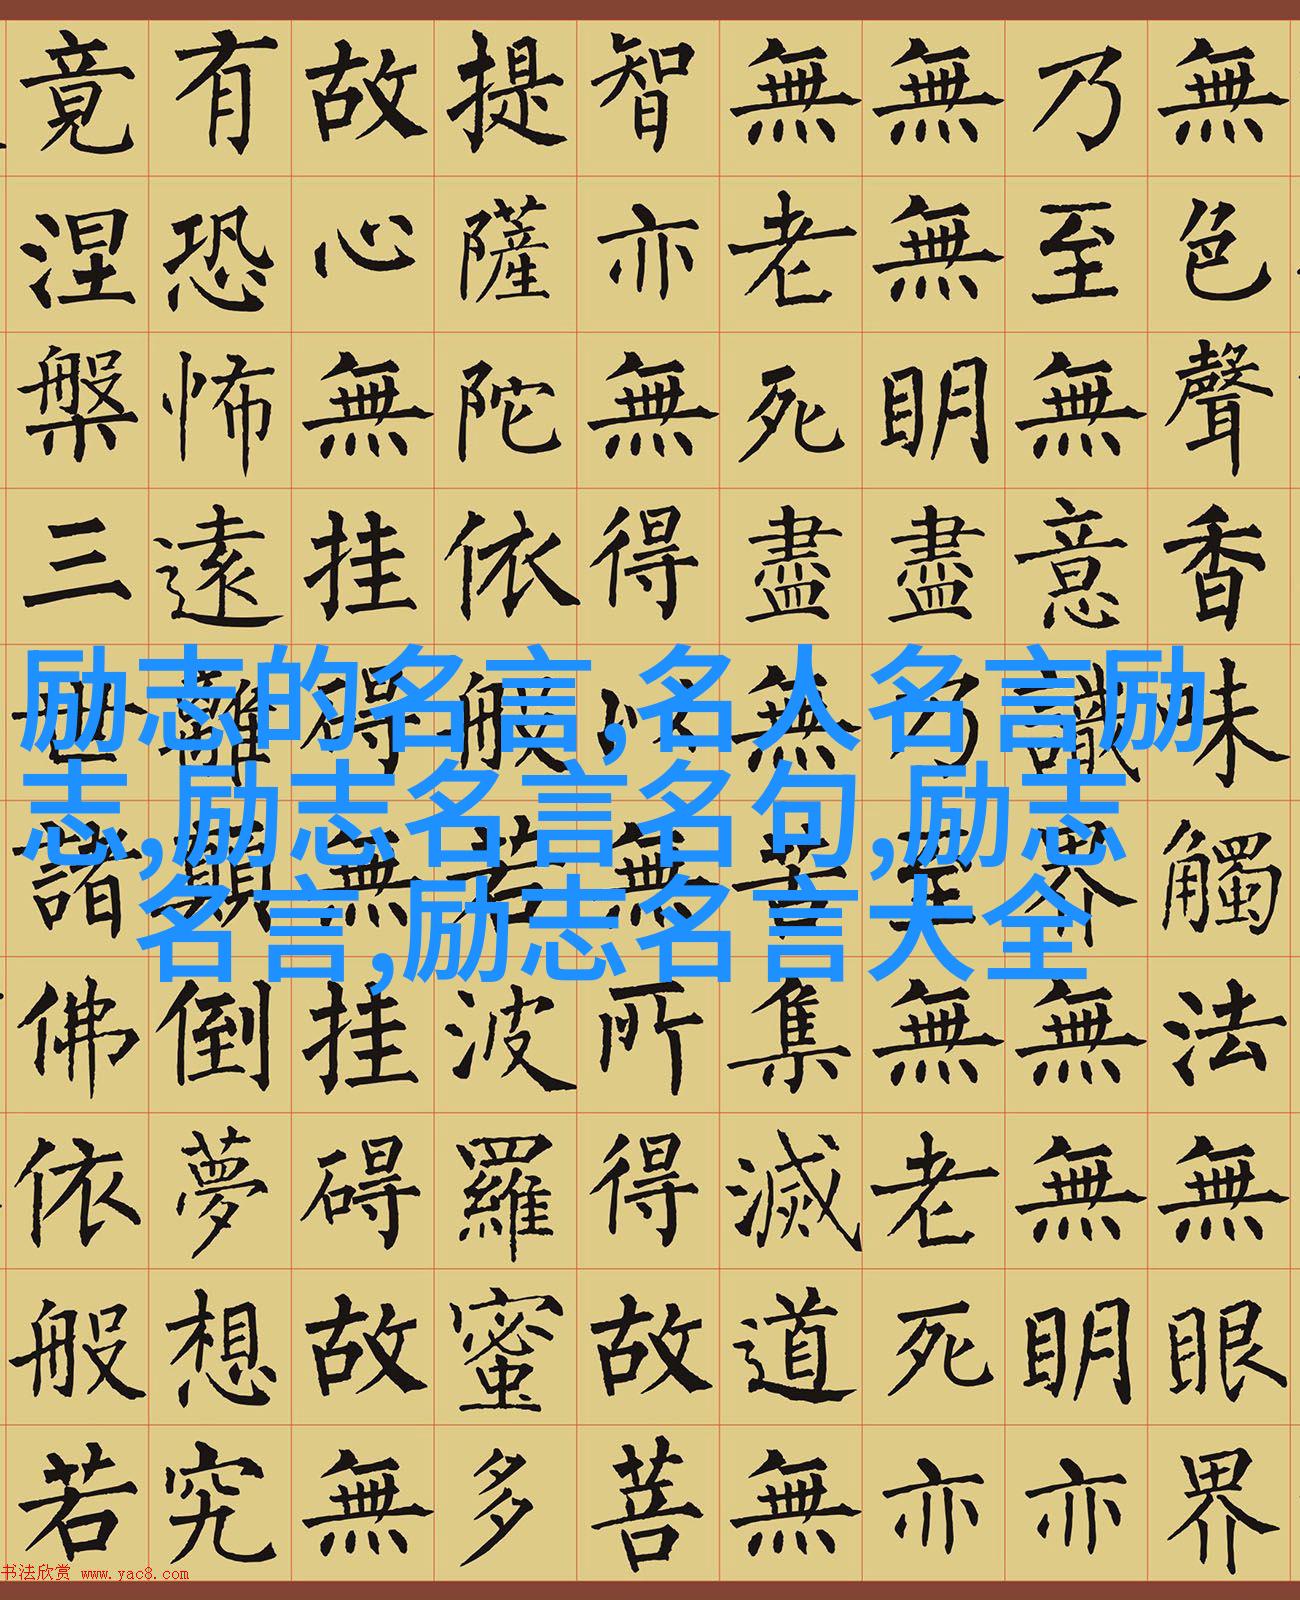 無色聲香味觸法無眼界
乃至無意識界無無眀亦
無無眀盡乃至無老死亦
無老死盡無苦集滅道無
智亦無得以無所得故菩
提薩陀依般若波羅蜜多
故心無挂碍無挂碍故無
有恐怖遠離顛倒夢想究
竟涅槃三世諸佛依般若
励志的名言,名人名言励
志,励志名言名句,励志
名言,励志名言大全
书法欣赏 www.yac8.com